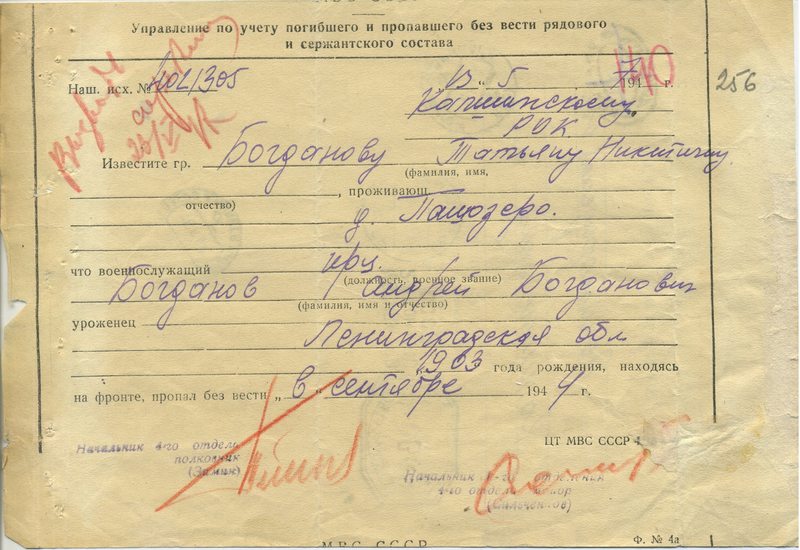 Управление по учету погибшего и пропавшего без вести рядового
и сержантского состава
Наш. исх. № 402/305
"13" 5 1947 г.
256
Капшинскому
РВК
Известите гр. Богданову Татьяну Никитичну
(фамилия, имя,
отчество)
, проживающ.
д. Пашозеро.
что военнослужащий крц.
(должность, военное звание)
Богданов Андрей Богданович
(фамилия, имя и отчество)
уроженец
Ленинградская обл
1903 года рождения, находясь
на фронте, пропал без вести „в" сентябре 1941 г.
ЦТ МВС СССР
Начальник 4-го отдела
полковник
(Зимин)
Начальник отделения
4-го отдела майор
(Сильченков)
МВС СССР
Ф. № 4а